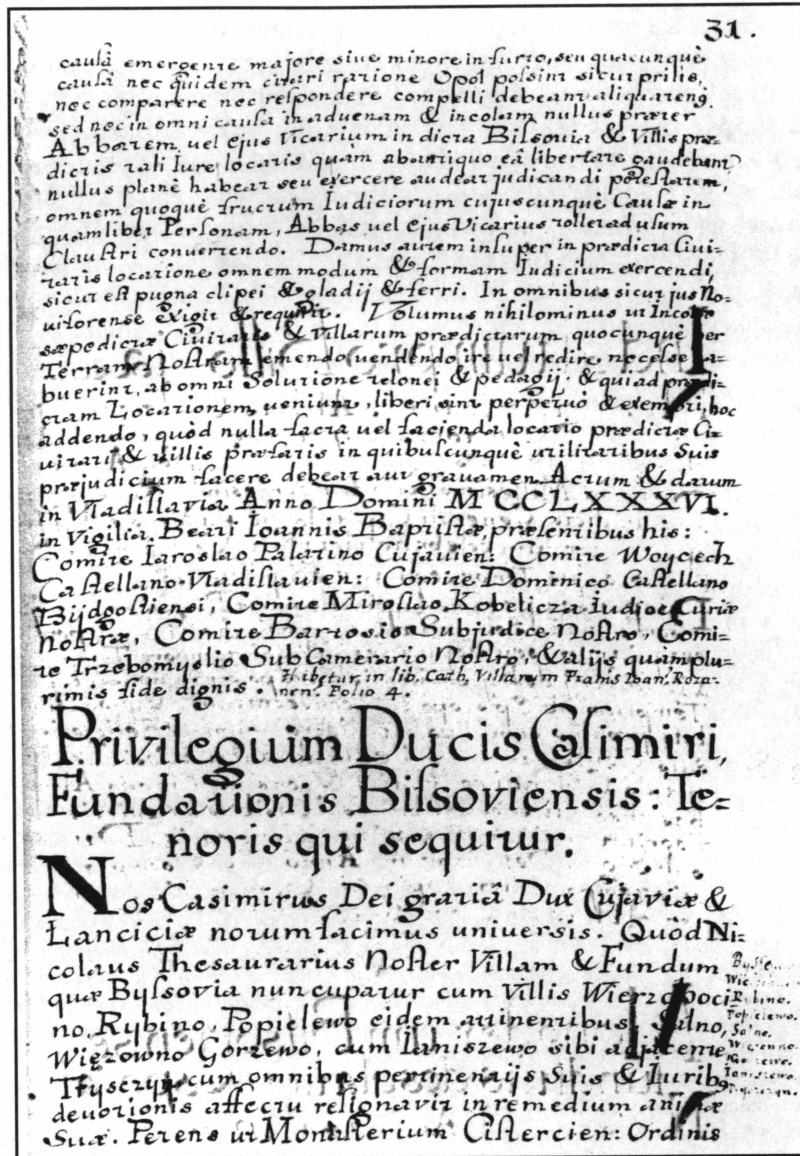 31.
causâ emergente majore sive minore in furto, seu quacunquè
causâ nec quidem citari ratione Opol possint sicut prilis,
nec comparere nec respondere compelli debeant aliquatenq.
sed nec in omni causa in aduenam & incolam nullus præter
Abbatem vel ejus Vicarium in dicta Bissouia & Villis præ=
dictis tali Iure locatis quàm ab antiquo eâ libertate gaudebunt
nullus planè habeat seu exercere audeat judicandi potestatem,
omnem quoquè fructum Iudiciorum cujuscunquè Causæ in
quamlibet Personam, Abbas vel ejus Vicarius tollet ad usum
Claustri convertendo. Damus autem insuper in prædicta Civi=
tatis locatione omnem modum & formam Iudicium exercendi,
sicut est pugna clipei & gladij & ferri. In omnibus sicut jus No=
uiforense exigit & requirit. Volumus nihilominus ut Incolæ
sæpedictæ Civitatis & Villarum prædictarum quocunquè per
Terram Nostram emendo uendendo ire uel redire necesse ha=
buerint, ab omni Solutione telonei & pedagij. & qui ad prædi=
ctam Locationem veniunt, liberi sint perpetuò & exempti, hoc
addendo, quòd nulla facta uel facienda locatio prædictæ Ci=
vitati & villis præfatis in quibuscunquè utilitatibus Suis
præjudicium facere debeat aut gravamen Actum & datum
in Vladislavia Anno Domini MCCLXXXVI.
in Vigilia Beati Ioannis Baptistæ, præsentibus his:
Comite Iaroslao Palatino Cujavien: Comite Woycech
Castellano Vladislavien: Comite Dominico Castellano
Bijdgostiensi, Comite Miroslao Kobelicza Iudice Curiæ
Nostræ, Comite Bartosio Subjudice Nostro, Comi=
te Trzebomyslio SubCamerario Nostro, & alijs quàm plu=
rimis fide dignis. Habetur in lib. Cath. Villarum Fratris Ioan. Roza=
nen. Folio 4.
Privilegium Ducis Casimiri,
Fundationis Bissoviensis: Te=
noris qui sequitur.
Nos Casimirus Dei gratiâ Dux Cujaviæ &
Lanciciæ notum facimus universis. Quòd Ni=
colaus Thesaurarius Noster Villam & Fundum
quæ Byssovia nuncupatur cum Villis Wierzchoci=
no, Rybino, Popielewo eidem attinentibus, Salno,
Więzowno Gorzewo, cum Ianiszewo sibi adjacente
Tryszczyn cum omnibus pertinentijs Suis & Iuribq
devotionis affectu resignavit in remedium animæ
Suæ. Petens ut Monasterium Cistercien: Ordinis
Rybino.
Popielewo.
Salno.